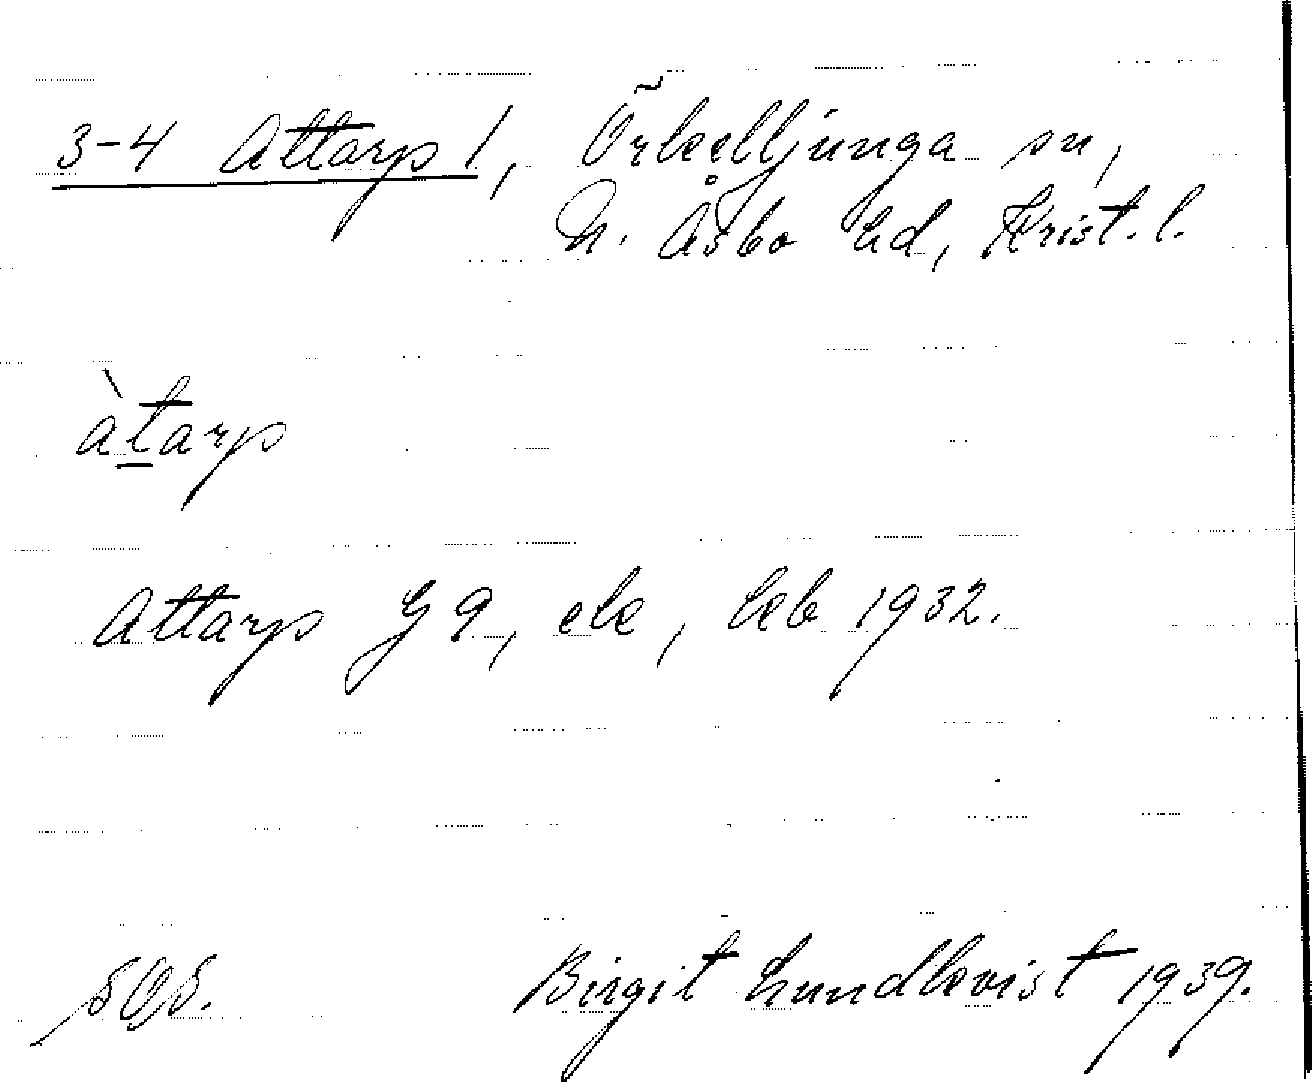 3-4 Attarp 1, Örkelljunga sn,
N. Åsbo hd, Krist. l.
àtarp
Attarp G 9, ek, lab 1932.
Birgit Lundkvist 1939.